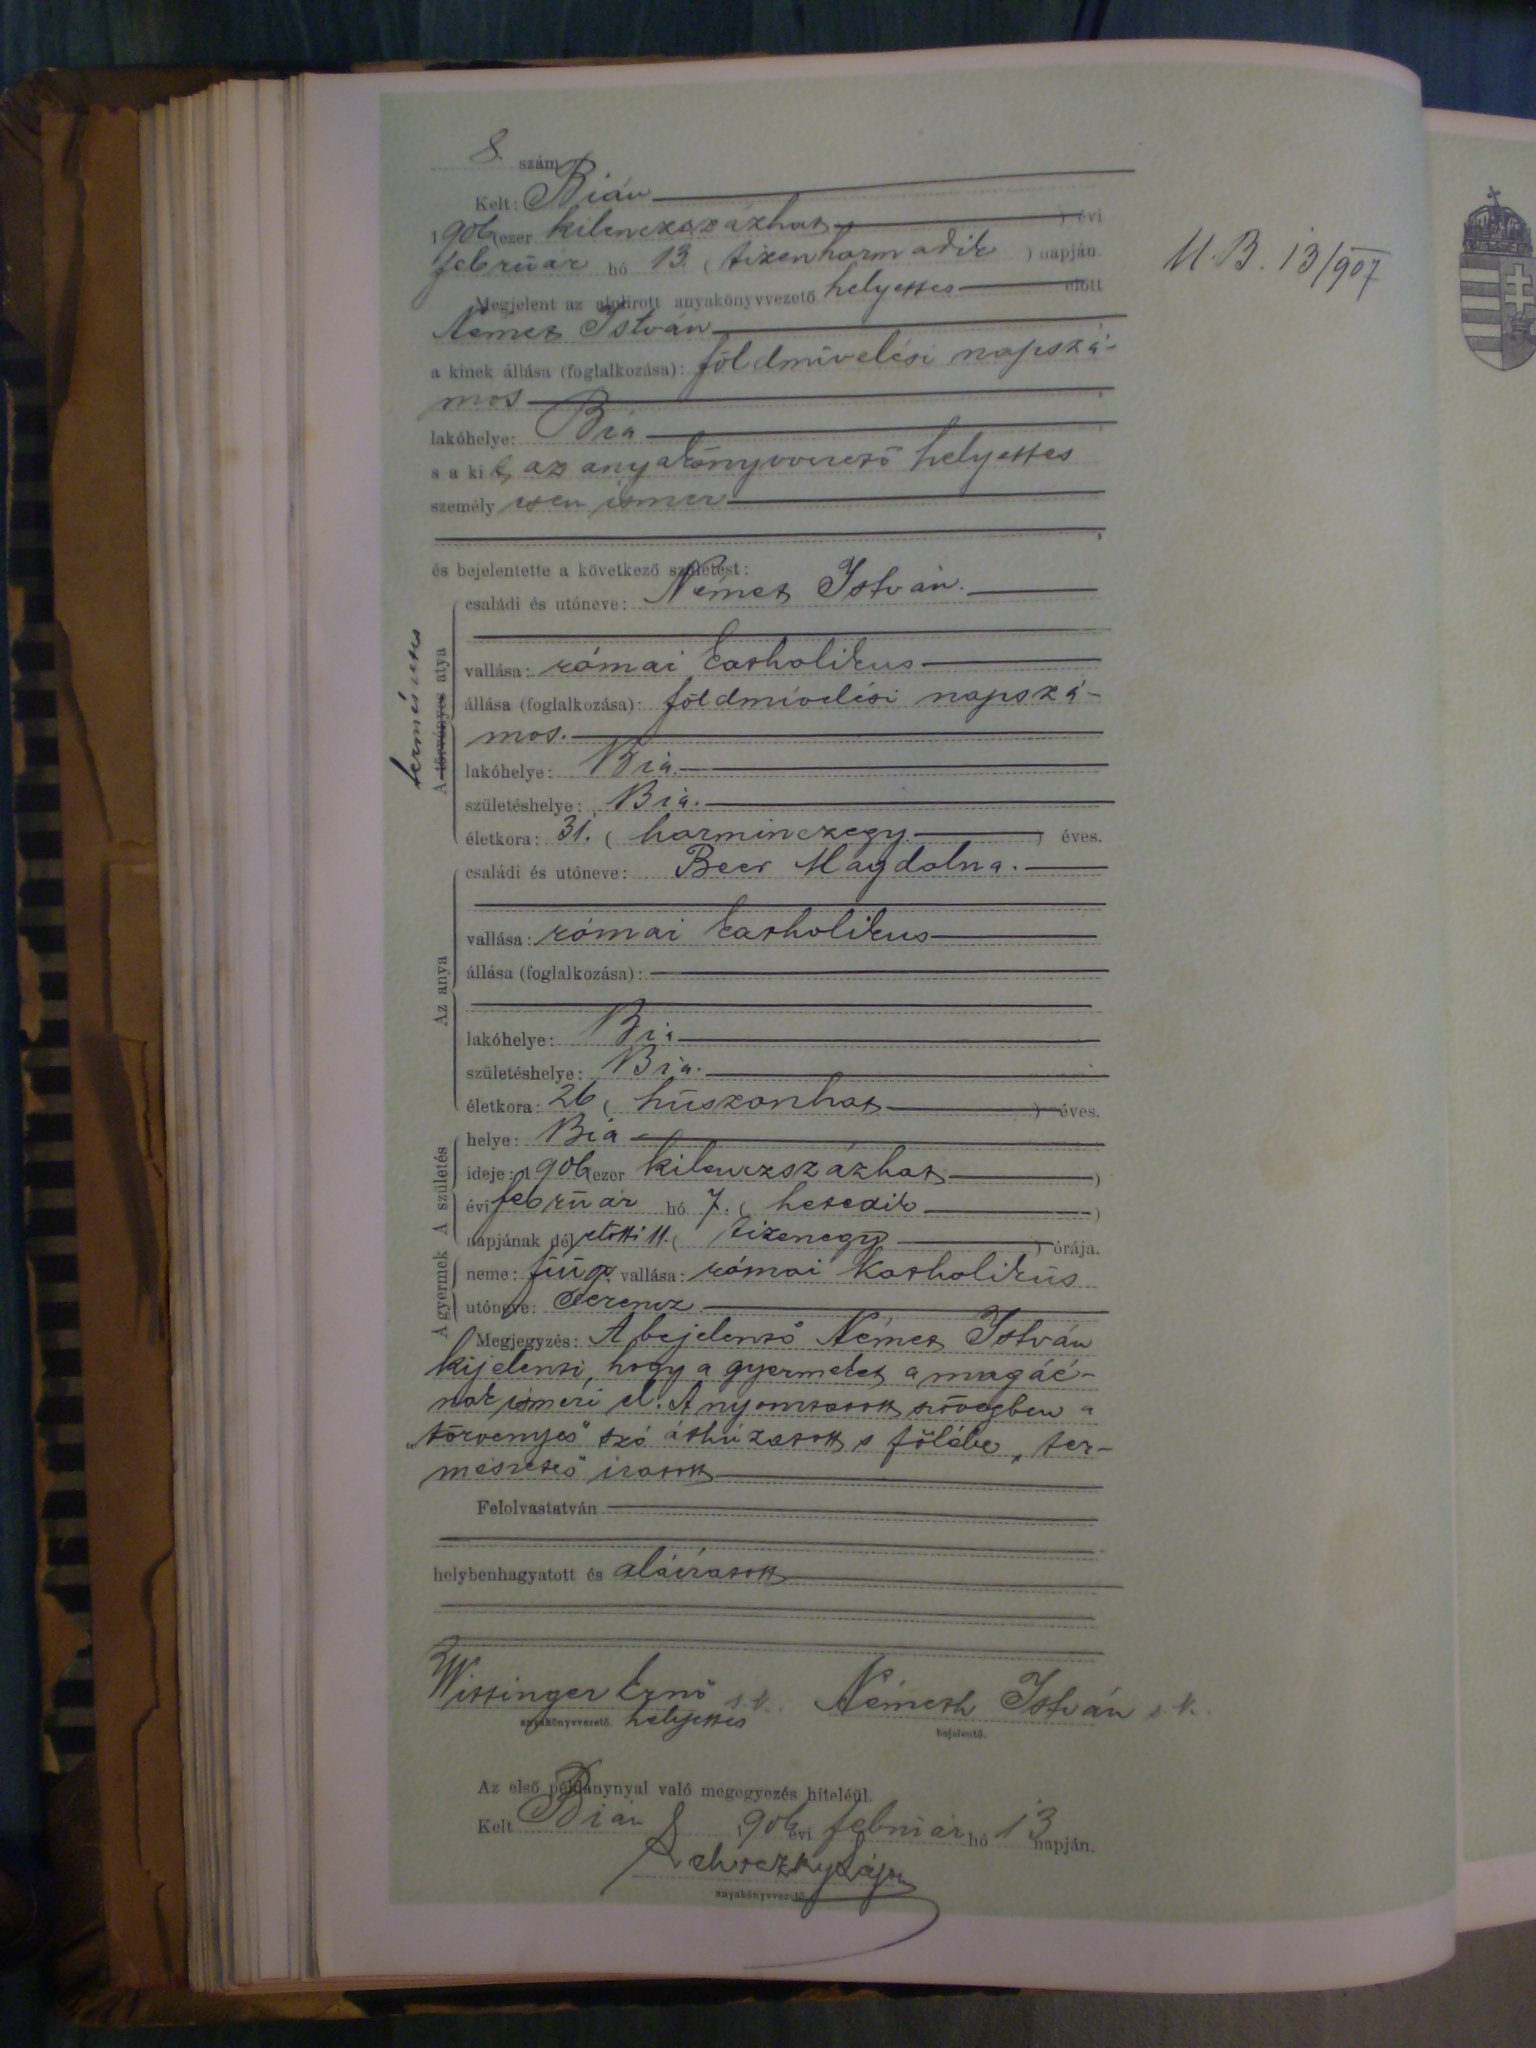 8. szám
Kelt: Bián
1906 (ezer kilenczszázhat ) évi
február hó 13. ( tizenharmadik ) napján.
M.B. 13/907
Megjelent az alulirott anyakönyvvezető helyettes előtt
Német István
a kinek állása (foglalkozása): földmívelési napszá-
mos
lakóhelye: Bia
s a kit, az anyakönyvvezető helyettes
személyesen ismer
és bejelentette a következő születést:
természetes
A törvényes atya
családi és utóneve: Német István.
vallása: római katholikus
állása (foglalkozása): földmívelési napszá-
mos.
lakóhelye: Bia.
születéshelye: Bia.
életkora: 31. ( harminczegy ) éves.
Az anya
családi és utóneve: Beer Magdolna.
vallása: római katholikus
állása (foglalkozása):
lakóhelye: Bia
születéshelye: Bia.
életkora: 26 ( húszonhat ) éves.
A születés
helye: Bia
ideje: 1906 (ezer kilenczszázhat )
évi február hó 7. ( hetedik )
napjának dél előtti 11. ( tizenegy ) órája.
A gyermek
neme: fiú vallása: római katholikús
utóneve: Ferencz.
Megjegyzés: A bejelentő Német István
kijelenti, hogy a gyermeket a magáé-
nak ismeri el. A nyomtatott szövegben a
„törvényes" szó áthúzatott s fölébe „ter-
mészetes" iratott
Felolvastatván
helybenhagyatott és aláíratott
Wittinger Ernő s.k. Németh István s.k.
anyakönyvvezető. helyettes bejelentő.
Az első példánynyal való megegyezés hiteléül.
Kelt Bián 1906 évi február hó 13 napján.
Lajos
anyakönyvvezető.